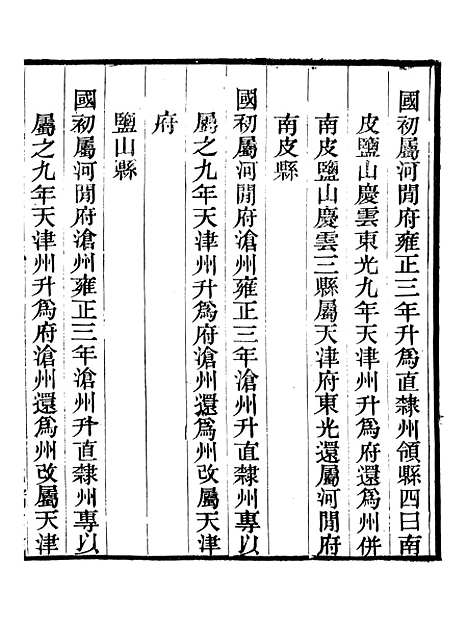 國初屬河閒府雍正三年升爲直隸州領縣四曰南
皮鹽山慶雲東光九年天津州升爲府還爲州併
南皮鹽山慶雲三縣屬天津府東光還屬河閒府
南皮縣
國初屬河閒府滄州雍正三年滄州升直隸州專以
屬之九年天津州升爲府滄州還爲州改屬天津
府
鹽山縣
國初屬河閒府滄州雍正三年滄州升直隸州專以
屬之九年天津州升爲府滄州還爲州改屬天津